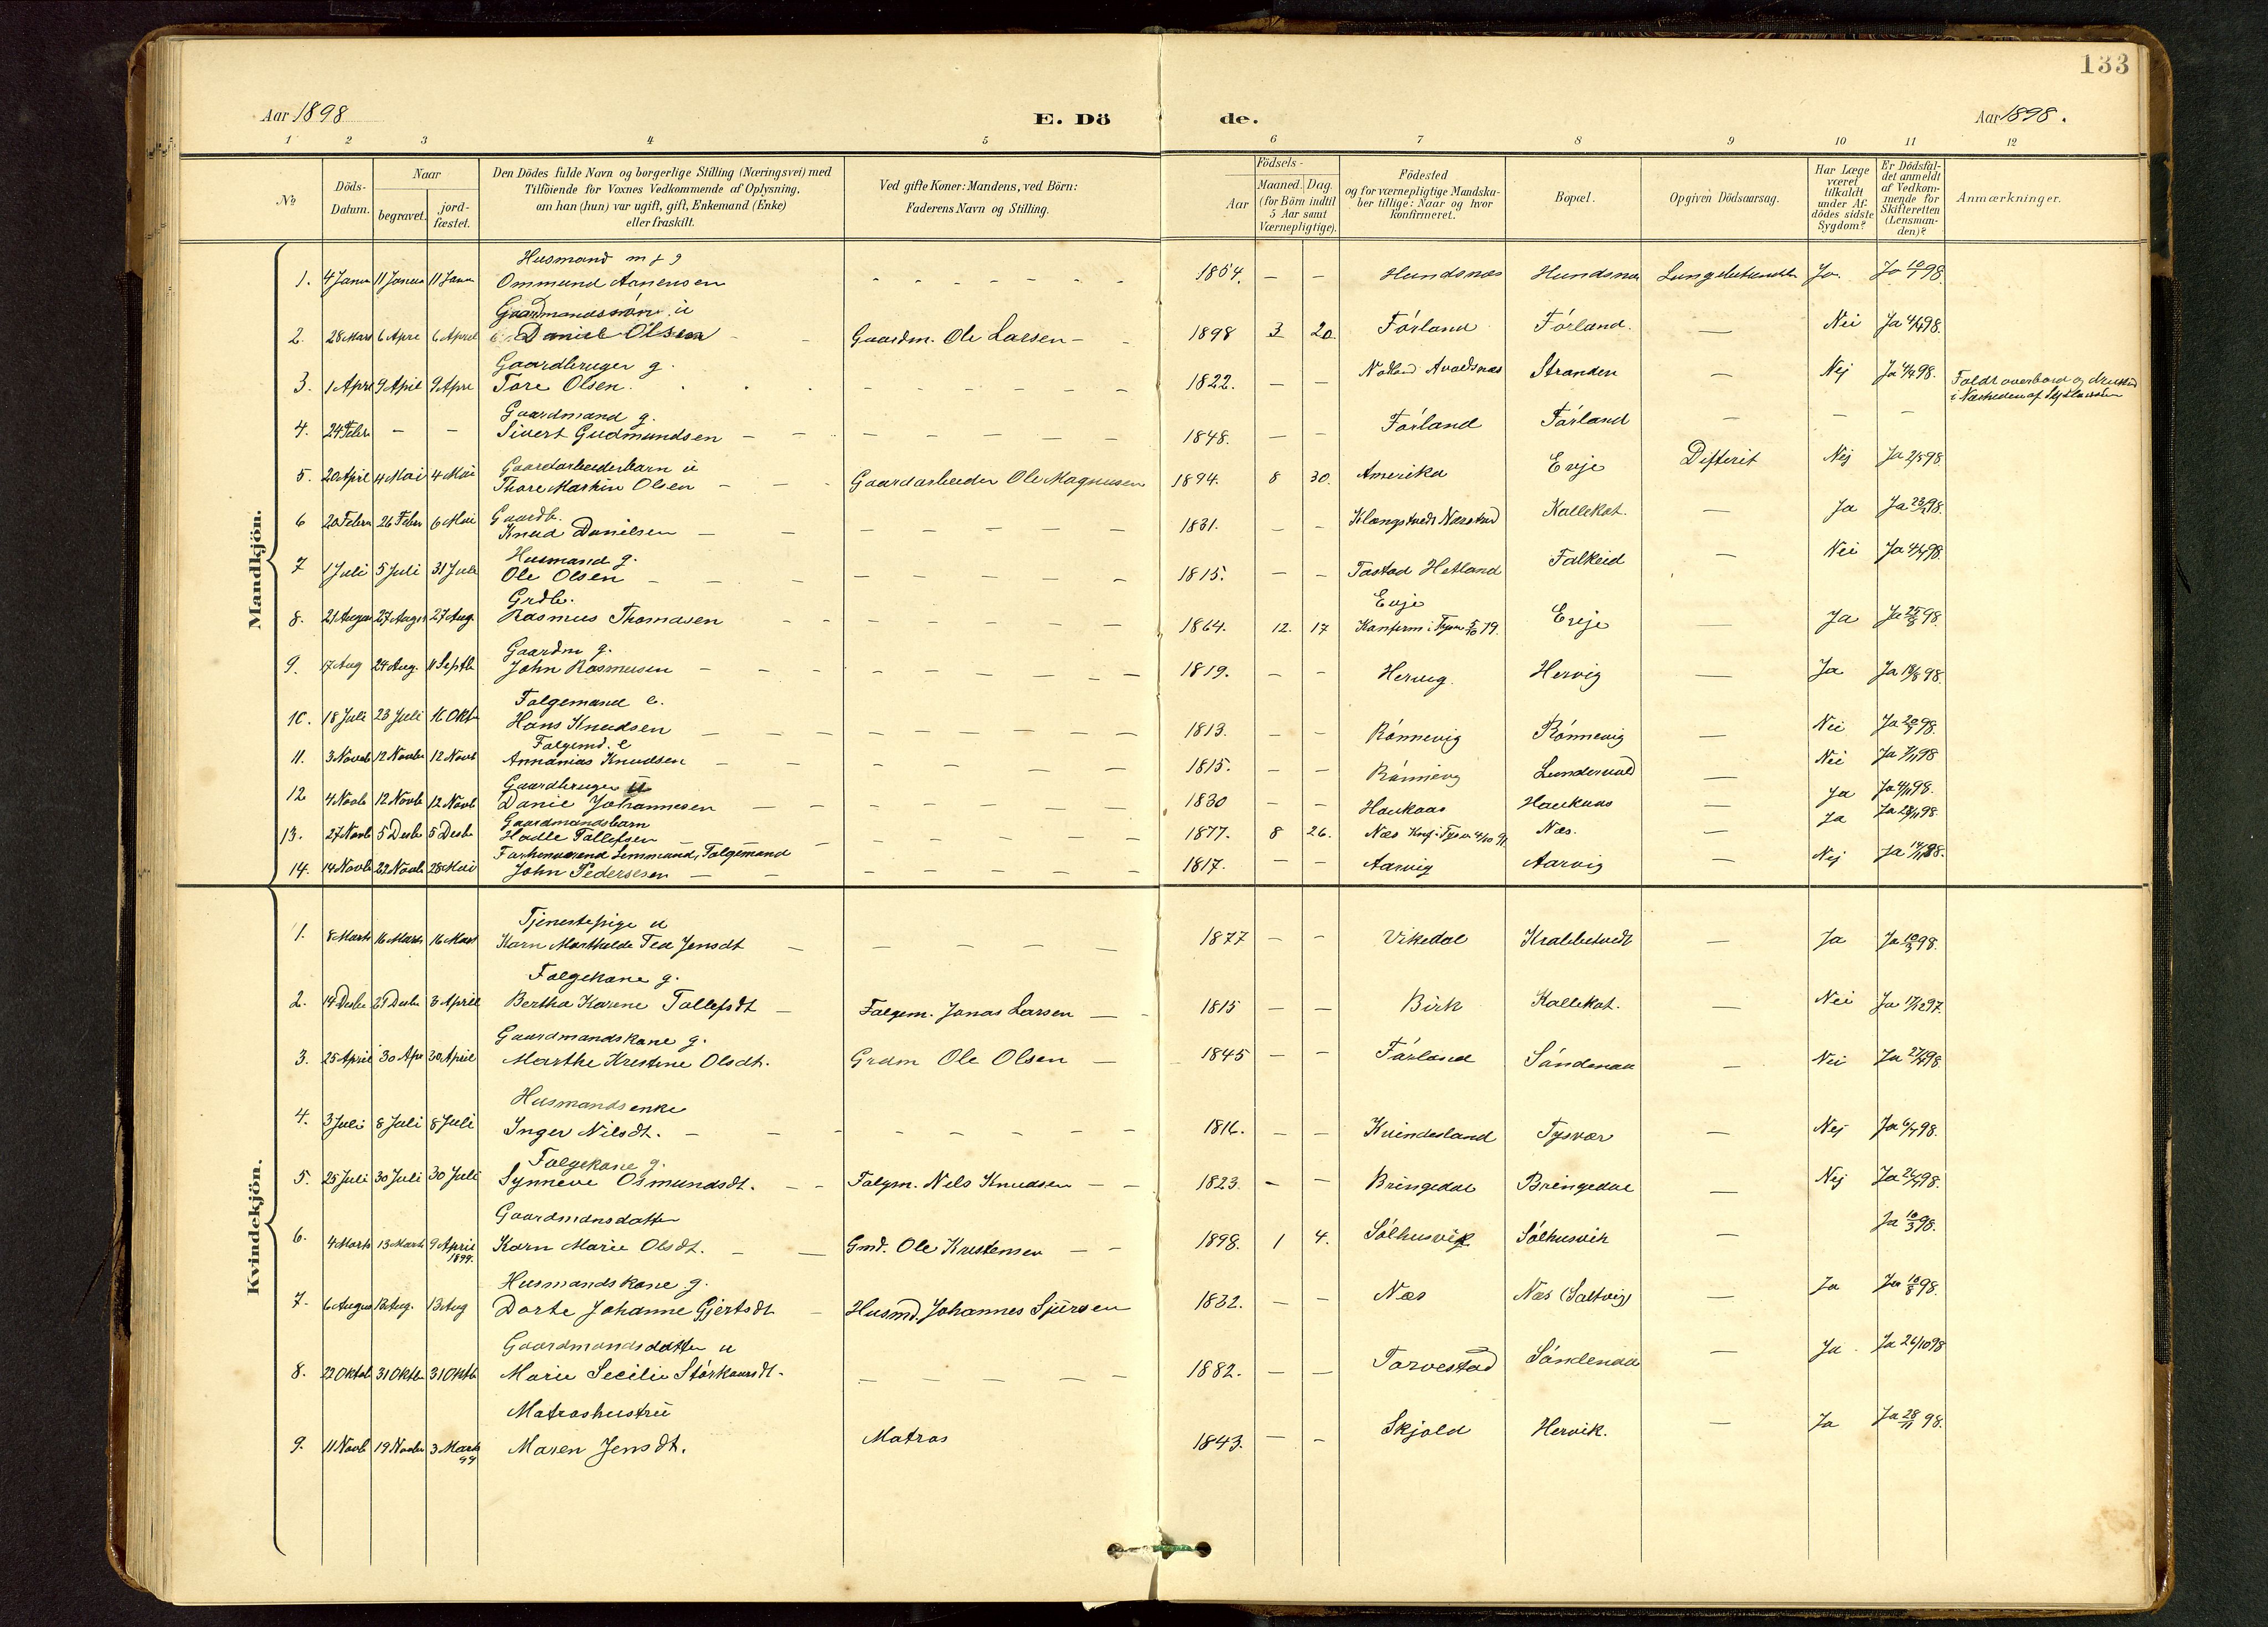 133
Aar 1898
E. Dö de.
Aar 1898.
1 2 3 4 5 6 7 8 9 10 11 12
№
Döds-Datum.
Naar
begravet.
jord-fæstet.
Den Dödes fulde Navn og borgerlige Stilling (Næringsvei) med
Tilföiende for Voxnes Vedkommende af Oplysning,
om han (hun) var ugift, gift, Enkemand (Enke)
eller fraskilt.
Ved gifte Koner: Mandens, ved Börn:
Faderens Navn og Stilling.
Födsels-
Aar
Maaned. Dag.
(for Börn indtil
5 Aar samt
Værnepligtige).
Födested
og for værnepligtige Mandska-
ber tillige: Naar og hvor
konfirmeret.
Bopæl.
Opgiven Dödsaarsag.
Har Læge
været
tilkaldt
under Af-
dödes sidste
Sygdom?
Er Dödsfal-
det anmeldt
af Vedkom-
mende for
Skifteretten
(Lensman-
den)?
Anmærkninger.
Mandkjön.
Husmand
1. 4 Janu 11 Janua 11 Janu Ommund Aanensen - - - - - - 1864. — — Hundsnæs Hundsnæs Ja. Ja 10/1 98.
Gaardmandssøn u
2. 28 Mars 6 Apri 6 April Daniel Olsen - - Gaardm. Ole Larsen - - 1898 3 20. Førland Førland. — Nei Ja 4/4 98.
Gaardbruger g.
3. 1 April 9 April 9 Apri Tore Olsen. - - - - - - 1822. — — Avaldsnæs Stranden — Nej Ja 98. Faldt overbord og druknede
i Nærheden af
Gaardmand g.
4. 24 Febr — — Sivert Gudmundsen — — — — — — — 1848. — — Førland Førland — — —
Gaardarbeiderbarn u
5. 20 April 4 Mai 4 Mai Thore Martin Olsen - - - Gaardarbeider Ole Magnusen 1894. 8 30. Amerika Erje Difterit Nej Ja 2/5 98.
Gaardb.
6 20 Febru 26 Febr 6 Mai Knud Danielsen — — — — — — — 1831. — — Kallekot. — Ja Ja 98.
Husmand g.
7 1 Juli 5 Juli 31 Juli Ole Olsen — — — — — — — — 1815. — — Tastad Hetland Falkeid — Nei Ja 4/7 98.
Grdb.
8. 21 August 27 Augus 27 Aug. Rasmus Thomasen - - - - - - - 1864. 12. 17 Erje
Konfirm i Tysv 5/10 79. Erje Ja Ja 25/8 98.
Gaardm g.
9. 17 Aug 24 Aug. 11 Septb John Rasmusen — — — — — — — — 1819. — — Hervig. Hervig — Ja Ja 18/8 98.
Folgemand e.
10. 18 Juli 23 Juli 16 Oktb Hans Knudsen — — — — — — — — 1813. — — Rønnevig Rønnevig — Nei Ja 20/7 98.
Folgemd. e
11. 3 Novb 12 Novbr 12 Novb Annanias Knudsen — — — — — — — 1815. — — Rønnevig — Nei Ja 7/11 98
Gaardbruger u
12 4 Novb 12 Novb 12 Novb Daniel Johannesen — — — — — — — — 1830 — — Haukaas Haukaas — Ja Ja 98.
Gaardmandsbarn
13. 27 Novb 5 Desbr 5 Desbr Hadle Tollefsen — — — — — — — 1877. 8 26. Næs Konf i Tysv 4/10 91. Næs. — Ja Ja 28/11 98.
Forhenværend Lensmand, Folgemand
14. 14 Novb 22 Novb 28 Mai John Pedersen — — — — — — — 1817. — — Aarvig Aarvig — Nej Ja 98.
Kvindekjön.
Tjenestepige u
1. 8 Marts 16 Marts 16 Mars Karn Marthilde Tea Jensdt — — — — — — 1877 — — Vikedal Krabbetvedt — Ja Ja 10/3 98.
Folgekone g.
2. 14 Desbr 21 Desbr 3 April Bertha Karine Tollefsdt — Folgem. Jonas Larsen — - 1815 — — Birk Kallekot. — Nei Ja 17/12 97.
Gaardmandskone g.
3. 25 April 30 Apr 30 April Marthe Kristine Olsdt. Grdm Ole Olsen — 1845 — — Førland Søndenaa — Nei Ja 27/4 98.
Husmandsenke
4. 3 Juli 8 Juli 8 Juli Inger Nilsdt. — — — — — — — — 1816. — — Kvindesland Tysvær — Nej Ja 6/7 98.
Folgekone g.
5. 25 Juli 30 Juli 30 Juli Synneve Osmundsdt. - - Folgm. Nels Knudsen — — 1823. — — Bringedal Bringedal — Nej Ja 26/7 98.
Gaardmansdatter
6. 4 Marts 13 Marts 9 April
1899. Karn Marie Olsdt. — — Gmd. Ole Kristensen — — 1898. 1 4. Solhusvik Solhusvik — Ja 10/3 98.
Husmandskone g.
7. 6 August 13 Aug. 13 Aug Dorte Johanne Gjertsdt — Husmd. Johannes Sjursen 1832. — — Næs Næs (Saltvig) — Ja Ja 10/8 98.
Gaardmandsdatter u
8. 22 Oktob 31 Oktb 31 Oktb Marie Secilie Størkaarsdt. — — — — — 1882. — — Torvestad Søndenaa — Ja Ja 26/10 98
Matroshustru
9. 11 Novb 19 Novbr 3 Marts
99 Maren Jensdt. Matros 1843. — — Skjold Hervik. — Ja Ja 28/11 98.